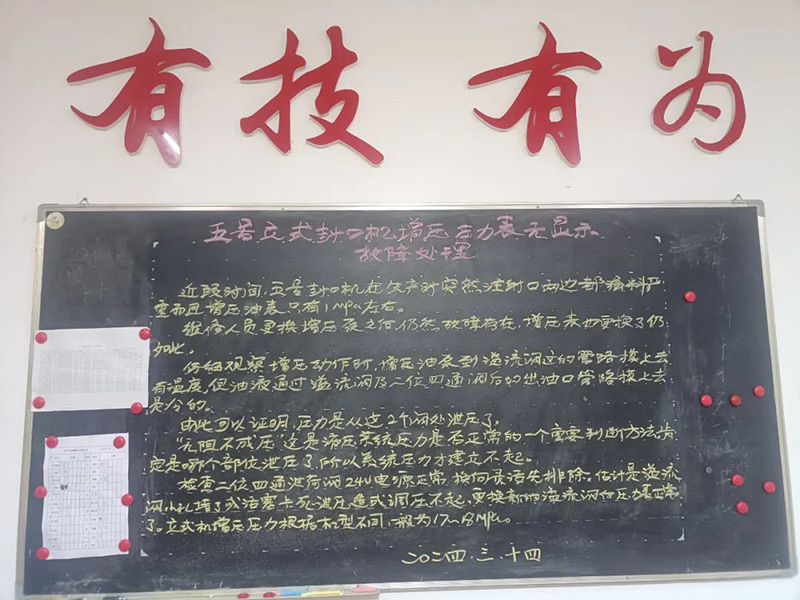 有技 有为
五号立式封口机增压压力表无显示
故障处理
近段时间，五号封口机在生产时突然注射口两边都漏料严
重而且增压油表只有1MPa左右。
维修人员更换增压泵之后仍然故障存在，增压表也更换了仍
如此。
仔细观察增压动作时，增压油泵到溢流阀这的管路摸上去
有温度，但油液通过溢流阀及二位四通阀后的出油口管路摸上去
是冷的。
由此可以证明，压力是从这2个阀处泄压了。
"无阻不成压"这是液压系统压力是否正常的一个重要判断方法肯
定是哪个部位泄压了，所以系统压力才建立不起。
检查二位四通泄荷阀24V电源正常，换向灵活先排除。估计是溢流
阀小孔堵了或活塞卡死泄压造成调压不起，更换新的溢流阀后压力表正常
了。立式机增压压力根据机型不同，一般为17~18MPa。
二〇二四.三.十四